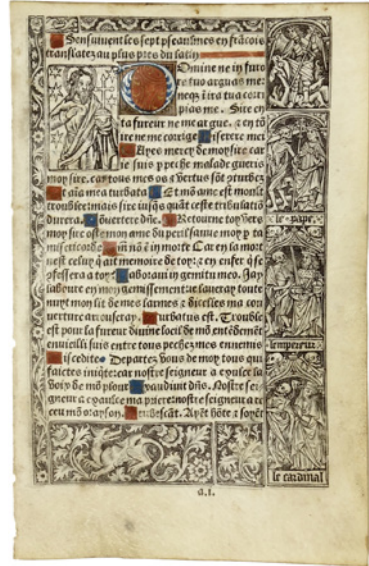 Sensuivent les sept pseaulmes en frācois
translatez au plus pres du latin
Omine ne in furo
re tuo arguas me:
neqȝ ī ira tua corri
pias me. Sire en
ta fureur ne me argue. ⁊ en tō
ire ne me corrige Miserere mei
Ayes mercy de moy sire car
ie suis ppeche malade gueris
moy sire. car tous mes os ⁊ vertus sōt ⁊turbez
Et aīa mea turbata Et mō ame est moult
troublee: mais sire iusqs quāt ceste tribulatiō
durera. Cōuertere dñe. Retourne toy vers
moy sire oste mon ame du peril sauue moy p ta
misericorde Qm̄ nō ē in morte Car en la mort
est celuy q̄ ait memoire de toy: ⁊ en enfer q̄ se
ꝯfessera a toy Laboraui in gemitu meo. Jay
laboure en mon gemissement: ie laueray toute
nuyt mon lit de mes larmes ⁊ dicelles ma cou
uerture arouseray. Turbatus est. Trouble
est pour la fureur diuine loeil de mō entēdemēt
enuieilli suis entre tous pechez mes ennemis
Discedite Departez vous de moy tous qui
faictes iniqte: car nostre seigneur a exulce la
voix de mō plour Exaudiuit dñs. Nostre sei
gneur a exaulce ma priere: nostre seigneur a re
ceu mō orayson. Erubescāt. Ayēt hōte ⁊ soyēt
le pape
lempereur
le cardinal
G.I.